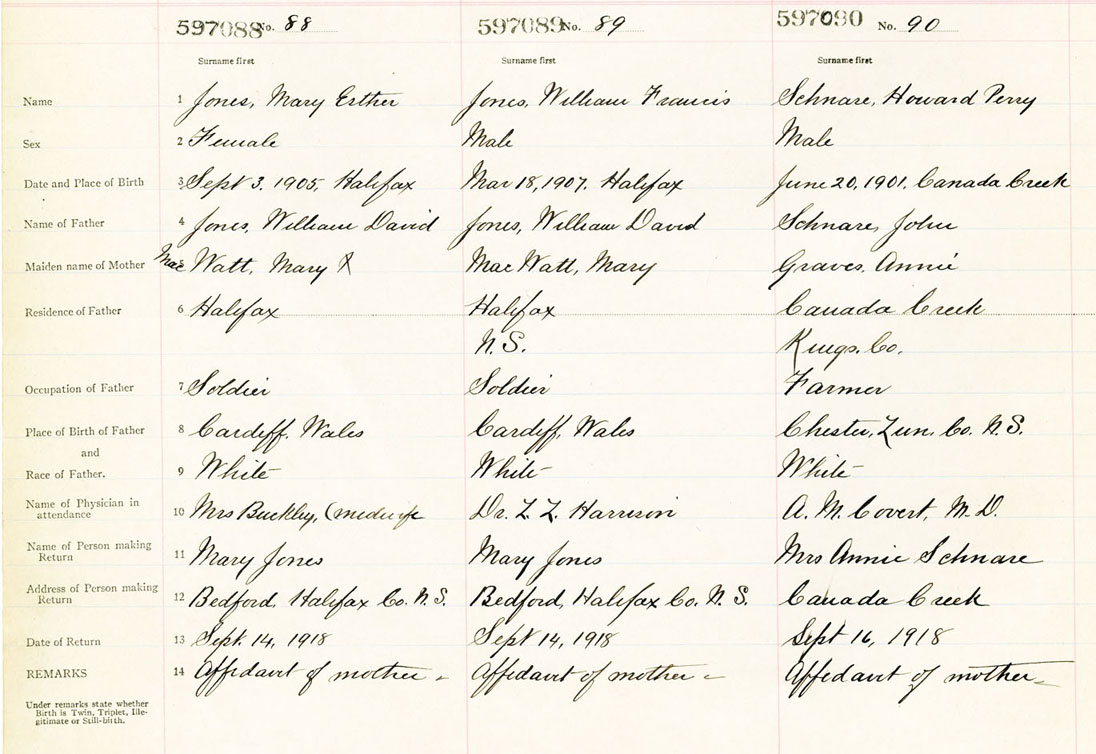 597088 No. 88 597089 No. 89 597090 No. 90
Surname first Surname first Surname first
Name 1 Jones, Mary Esther Jones, William Francis Schnare, Howard Perry
Sex 2 Female Male Male
Date and Place of Birth 3 Sept 3, 1905, Halifax Mar 18, 1907, Halifax June 20, 1901, Canada Creek
Name of Father 4 Jones, William David Jones, William David Schnare, John
Maiden name of Mother 5 Mac Watt, Mary Mac Watt, Mary Graves, Annie
Residence of Father 6 Halifax Halifax Canada Creek
N.S. Kings. Co.
Occupation of Father 7 Soldier Soldier Farmer
Place of Birth of Father 8 Cardiff, Wales Cardiff, Wales Chester, Lun. Co. N.S.
and
Race of Father. 9 White White White
Name of Physician in
attendance 10 Mrs Buckley, (midwife Dr. L L. Harrison A. M. Covert, M.D.
Name of Person making
Return 11 Mary Jones Mary Jones Mrs Annie Schnare
Address of Person making
Return 12 Bedford, Halifax Co. N.S. Bedford, Halifax Co. N.S. Canada Creek
Date of Return 13 Sept. 14, 1918 Sept 14, 1918 Sept 16, 1918
REMARKS 14 Affidavit of mother - Affidavit of mother - Affidavit of mother -
Under remarks state whether
Birth is Twin, Triplet, Ille-
gitimate or Still-birth.